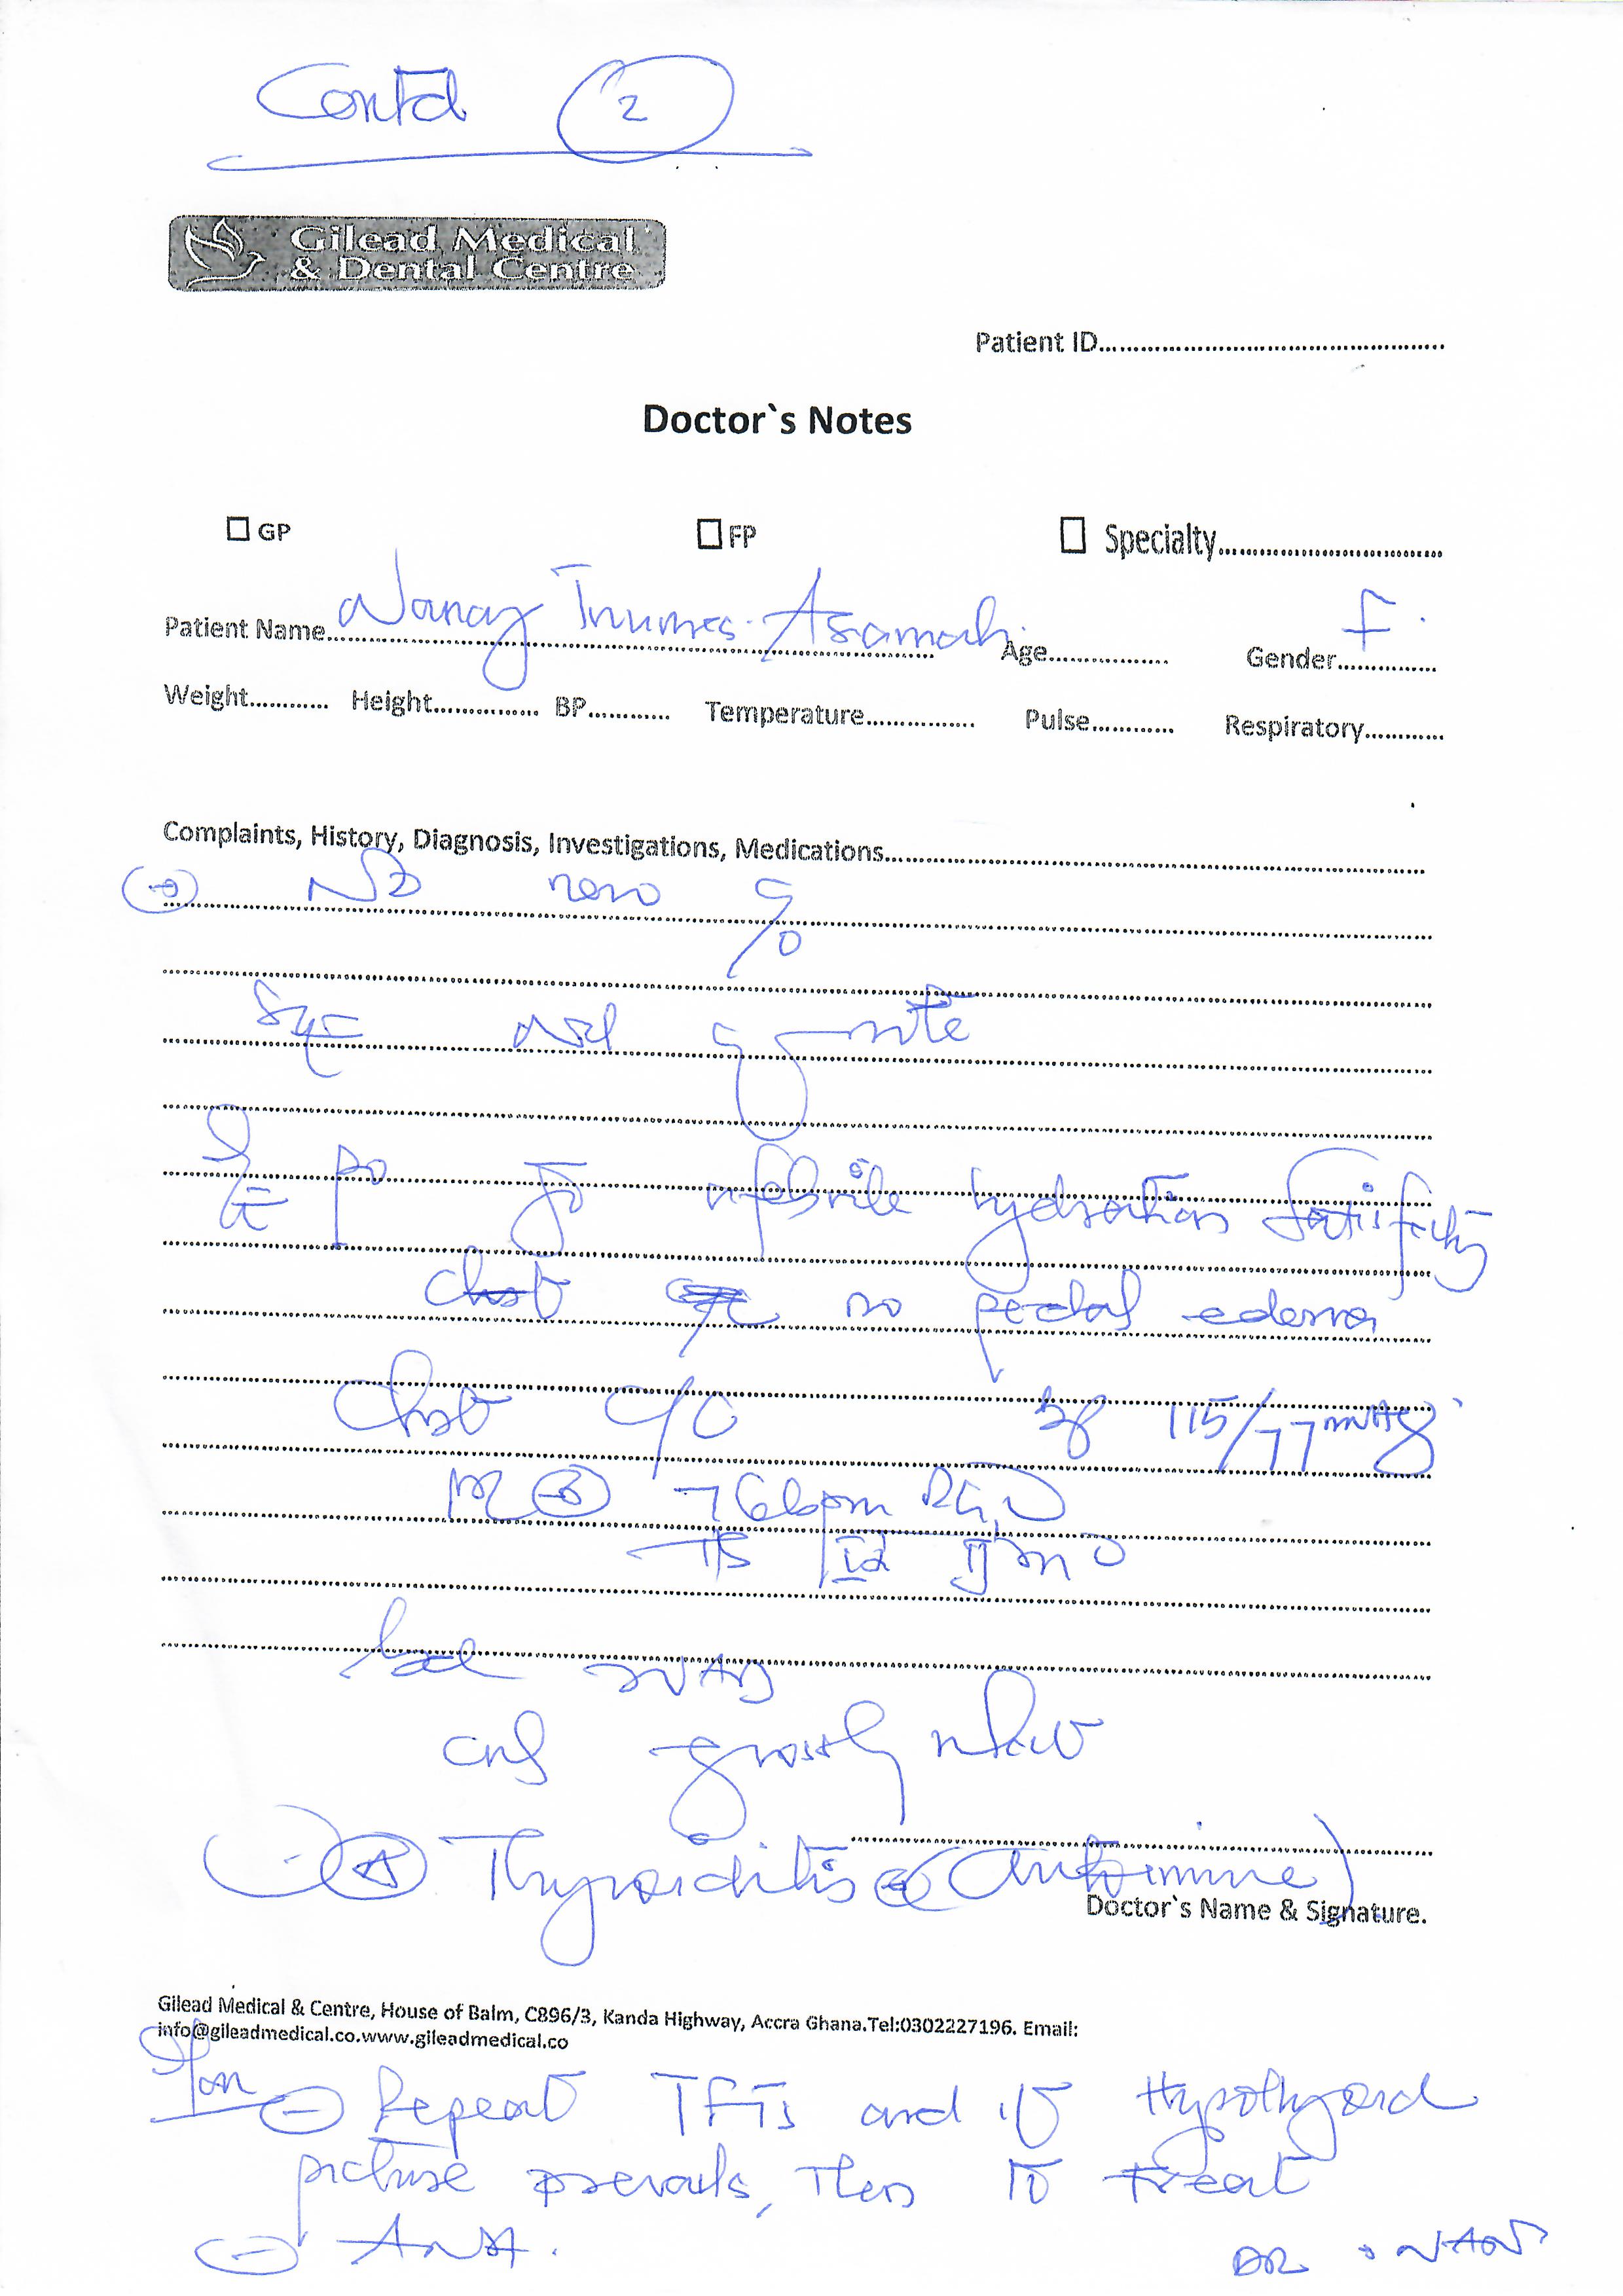 Contd 2
Gilead Medical
& Dental Centre
Patient ID
Doctor`s Notes
GP FP Specialty
Patient Name Nancy Asamoah Age Gender F.
Weight Height BP Temperature Pulse Respiratory
Complaints, History, Diagnosis, Investigations, Medications
No new c/o
O/E po jo afebrile hydration satisfactory
no pedal edema
Chest c/c BP 115/77mmHg
76bpm RG,
cns grossly intact
A Thyroiditis (autoimmune)
Doctor`s Name & Signature.
Gilead Medical & Centre, House of Balm, C896/3, Kanda Highway, Accra Ghana.Tel:0302227196. Email:
info@gileadmedical.co.www.gileadmedical.co
Plan - Repeat TFTs and if Hypothyroid
picture prevails, then to treat
- ANA.
DR